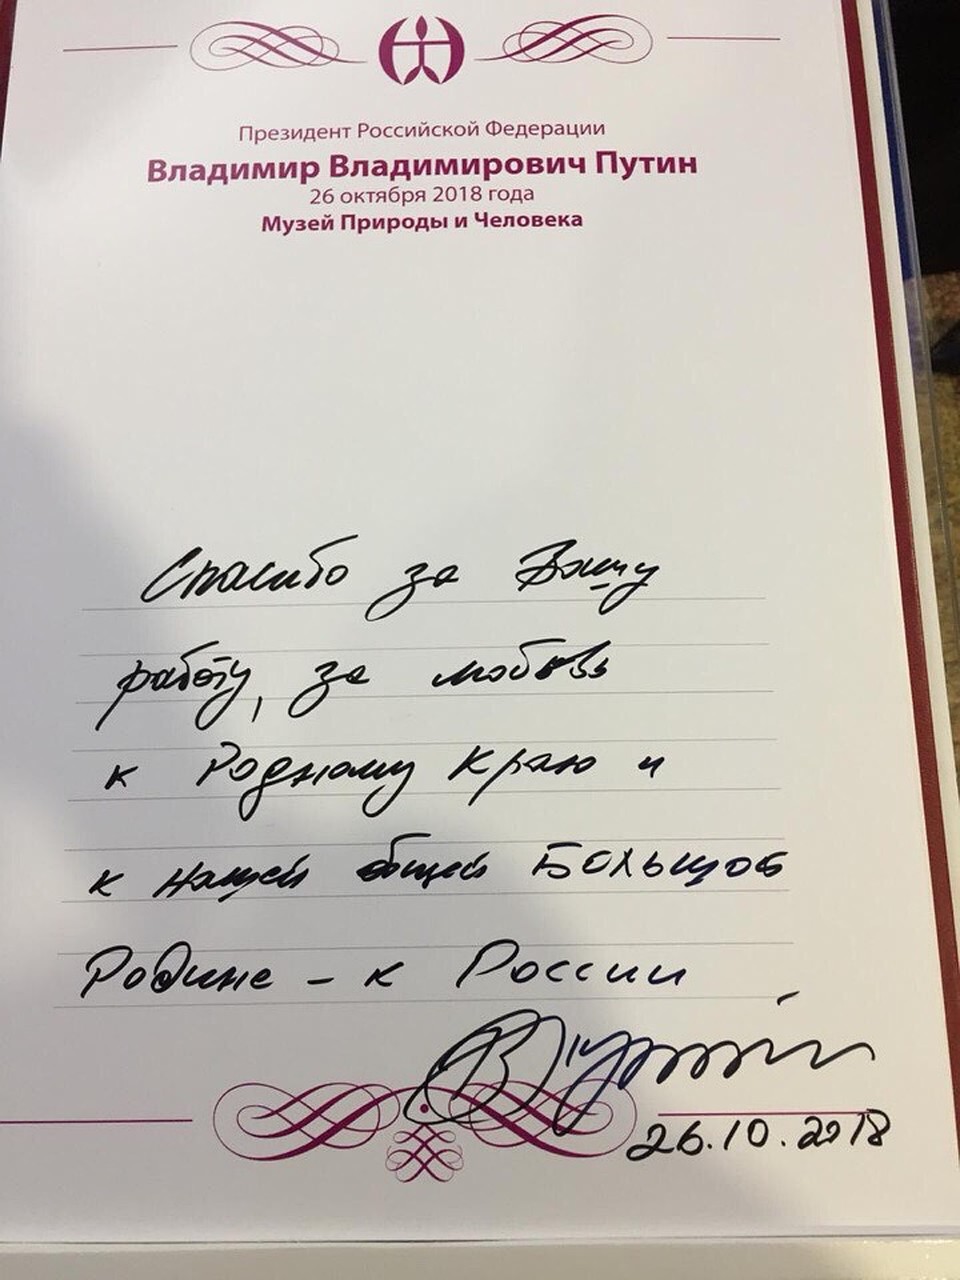 Президент Российской Федерации
Владимир Владимирович Путин
26 октября 2018 года
Музей Природы и Человека
Спасибо за Вашу
работу, за любовь
к Родному Краю и
к нашей общей Большой
Родине – к России
26.10.2018